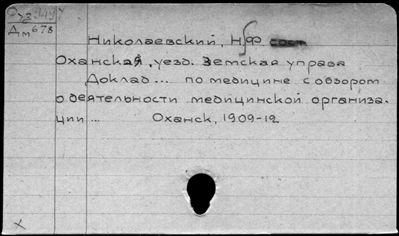 Дм 678
Николаевский, Н.Ф.
Оханская, уезд. Земская управа
Доклад... по медицине с обзором
о деятельности медицинской организа-
ции... Оханск, 1909-12
x